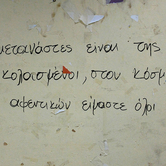 μετανάστες είναι της
κολασμένοι, στον κόσμ
αφεντικών είμαστε όλοι